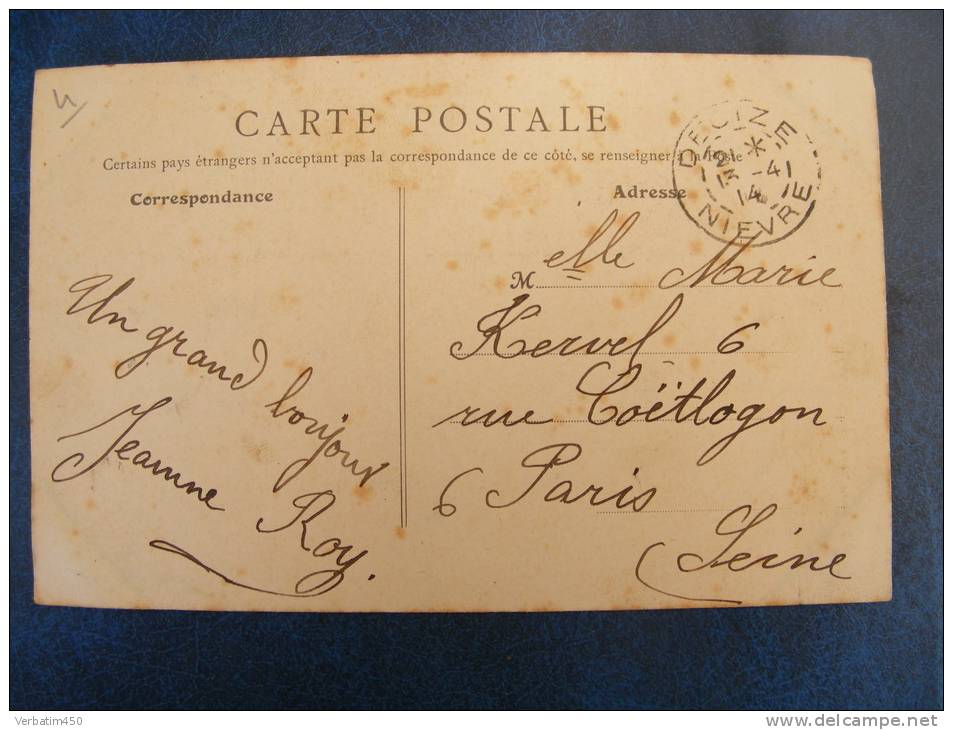 CARTE POSTALE
Certains pays étrangers n'acceptant pas la correspondance de ce côté, se renseigner à la Poste
Correspondance
Adresse
DECIZE
-41
14
NIEVRE
Un grand boujour
Jeanne Roy.
Melle Marie
Kervel 6
rue Coëtlogon
6 Paris
Seine
Verbatim450
www.delcampe.net